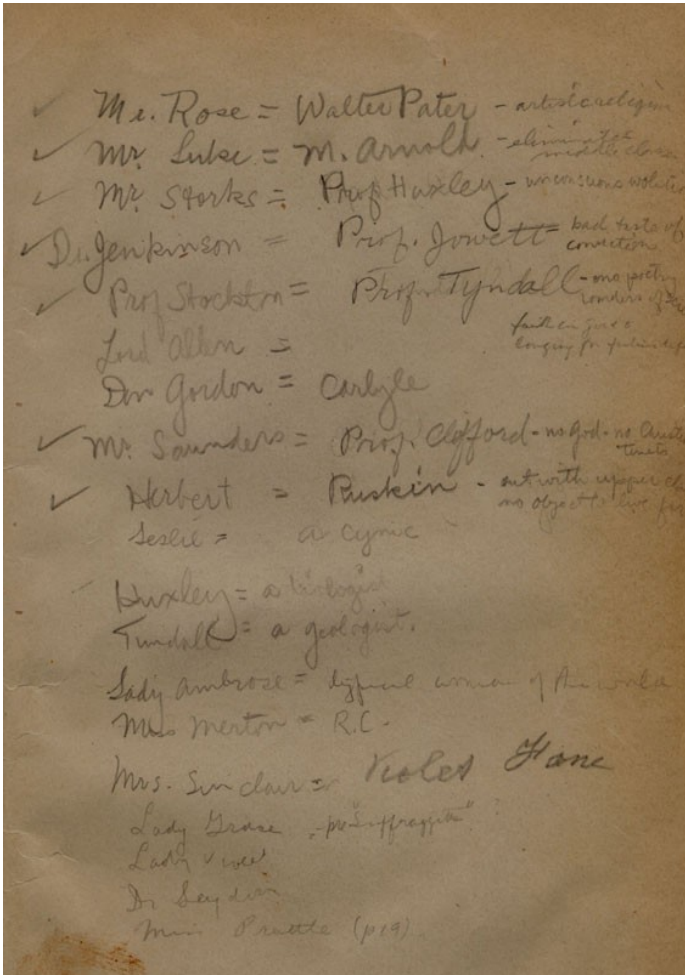 ✓ Mr. Rose = Walter Pater -
✓ Mr. Luke = M. Arnold -
middle classes
✓ Mr. Storks = Prof Huxley - unconscious
✓ Dr. Jenkinson = Prof. Jowett = bad taste of
conviction
✓ Prof Stockton = Prof. Tyndall - poetry
wonders of
longing for
Lord Allen =
Don Gordon = Carlyle
✓ Mr. Saunders = Prof. Clifford - no god - no
tenets
✓ Herbert = Ruskin - out with upper
no object to live for
Leslie = a cynic
Huxley = a biologist
Tyndall = a geologist.
Lady Ambrose = typical woman of the world
Miss Merton = R.C.
Mrs. Sinclair = Violet Fane
Lady Grace -
Lady
Dr Seydon
Miss Prattle (p19)